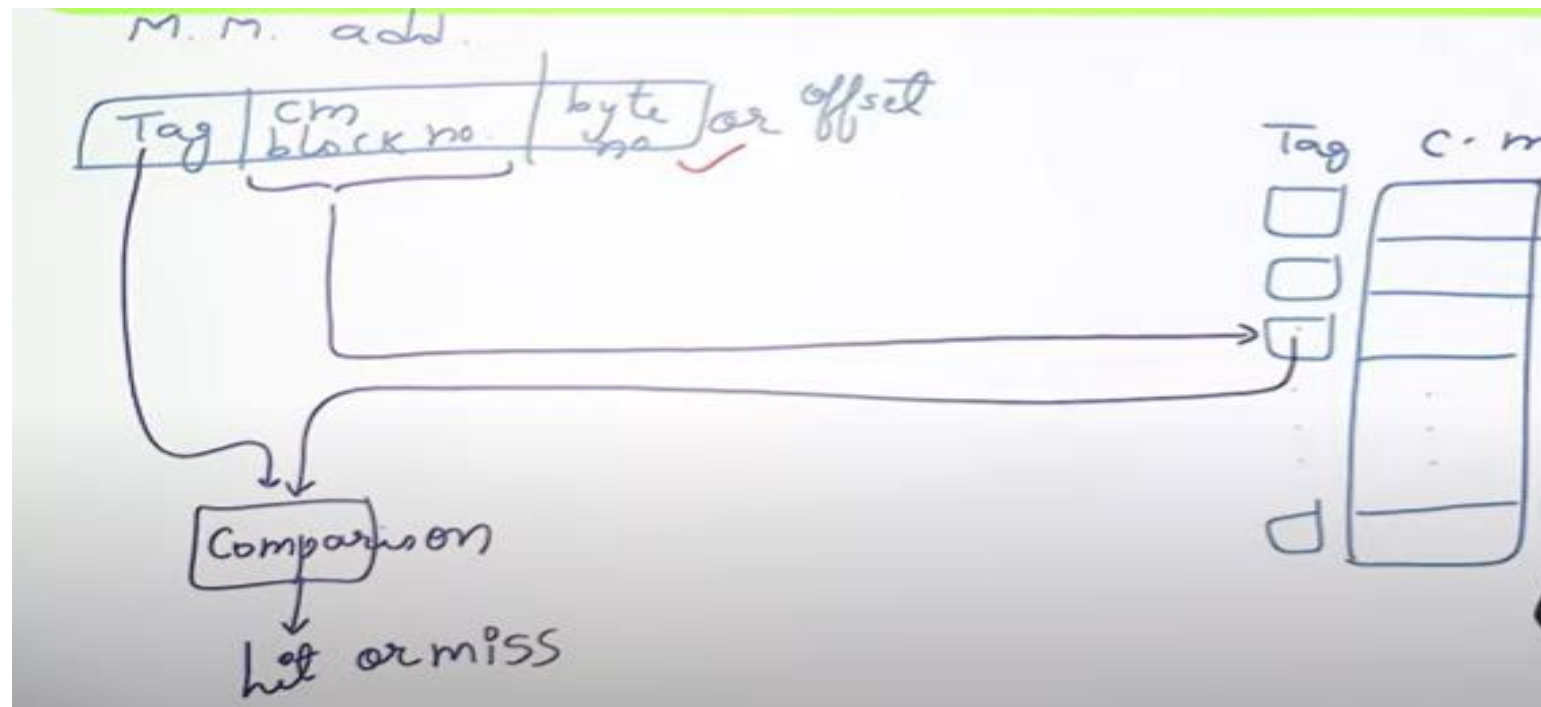 M.M. add.
Tag cm block no. byte no or offset
Tag C.m
Comparison
hit or miss